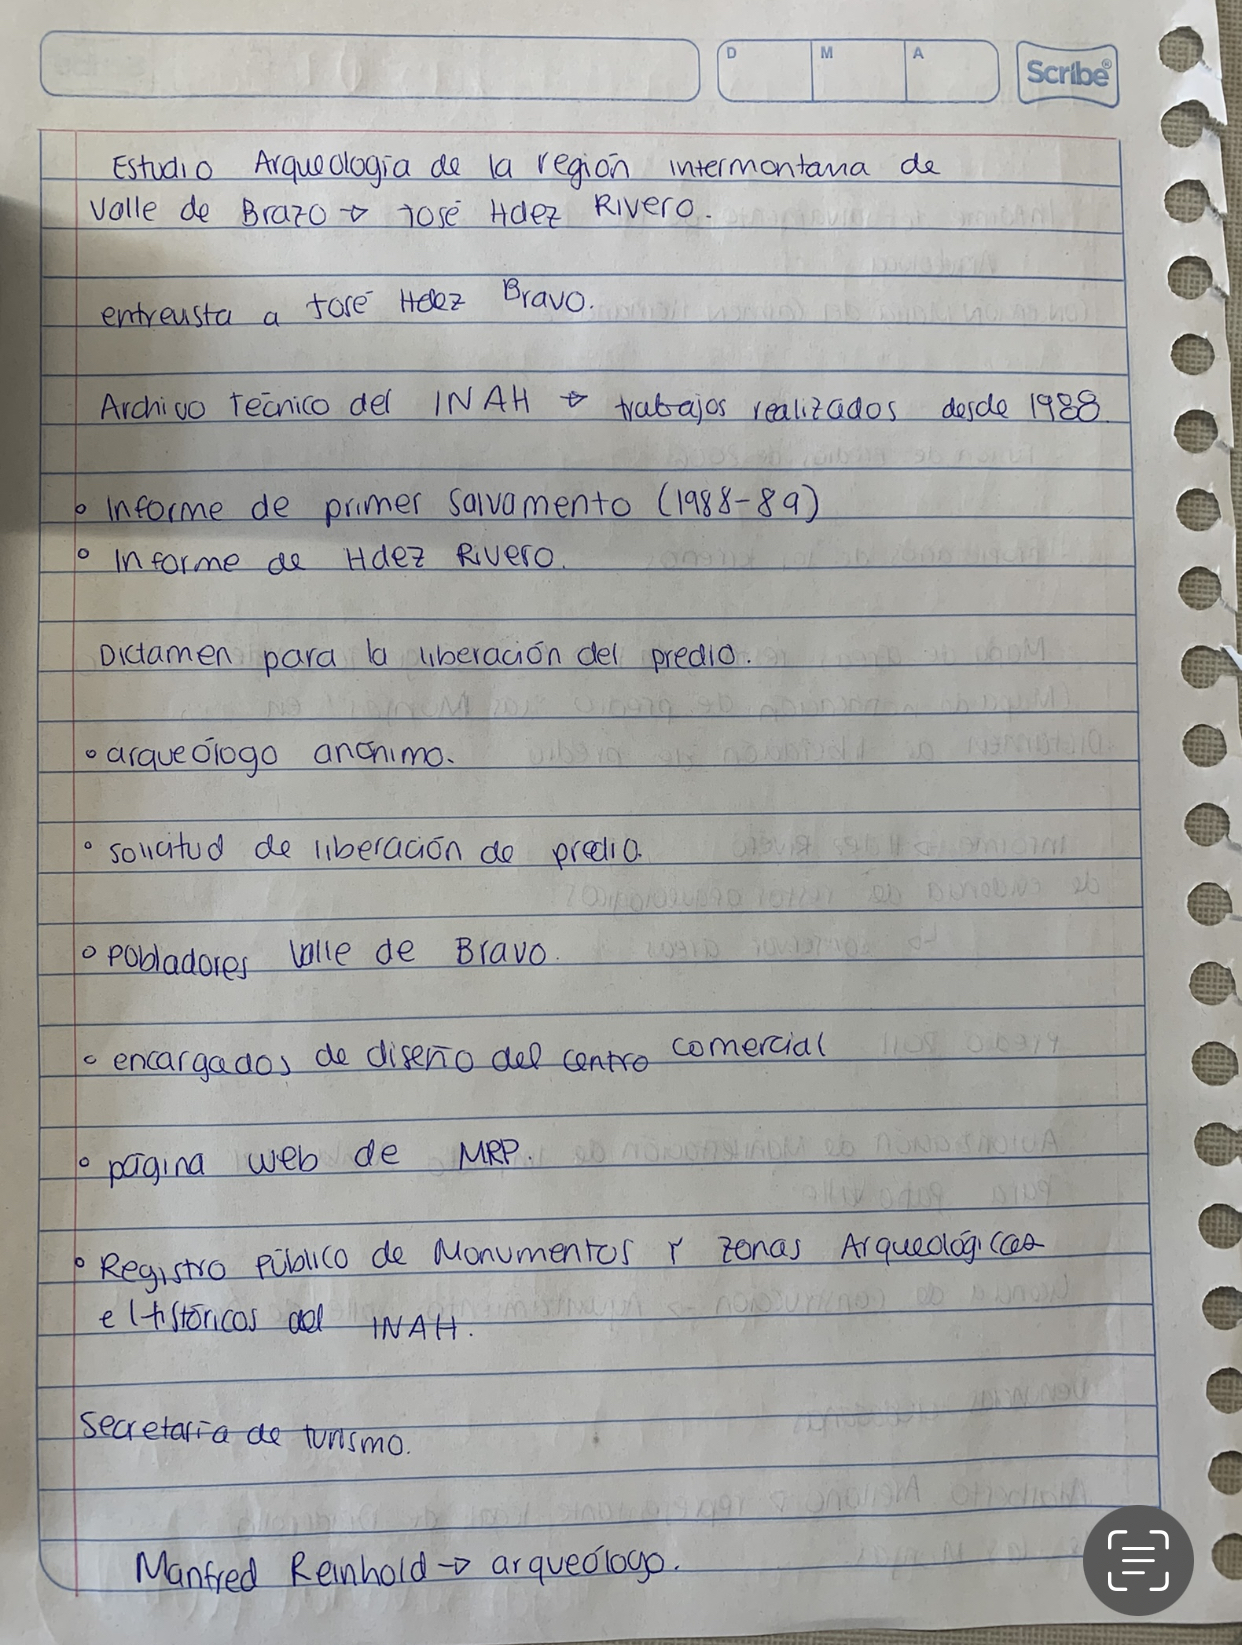 D M A
Scribe®
Estudio Arqueología de la región intermontana de
Valle de Brazo → José Hdez Rivero.
entreusta a José Hdez Bravo.
Archivo técnico del INAH → trabajos realizados desde 1988.
• Informe de primer salvamento (1988-89)
• Informe de Hdez Rivero.
Dictamen para la liberación del predio.
• arqueólogo anónimo.
• solicitud de liberación de predio.
• pobladores Valle de Bravo.
• encargados de diseño del centro comercial
• página web de MRP.
• Registro Público de Monumentos y zonas Arqueológicas
e Históricos del INAH.
Secretaría de turismo.
Manfred Reinhold → arqueólogo.